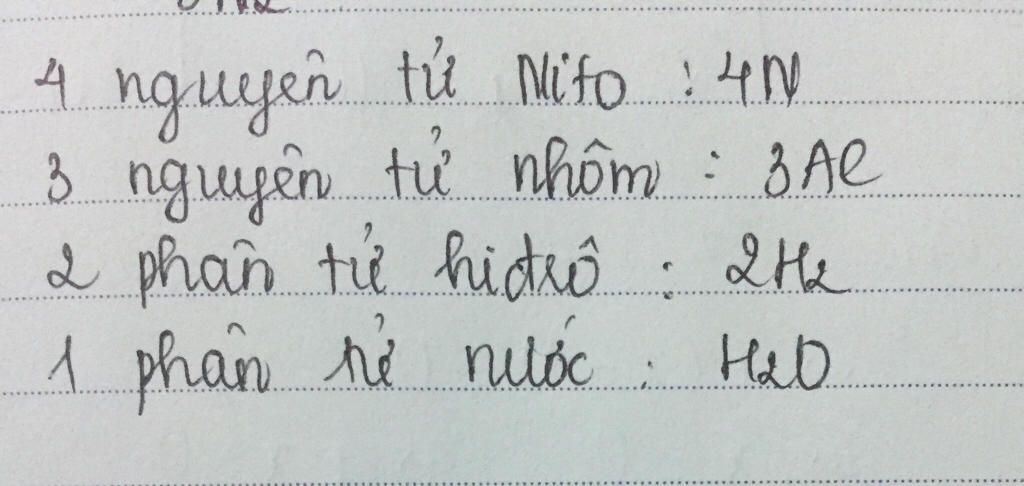 4 nguyên tử Nitơ : 4N
3 nguyên tử nhôm : 3Al
2 phân tử hiđrô : 2H2
1 phân tử nước : H2O